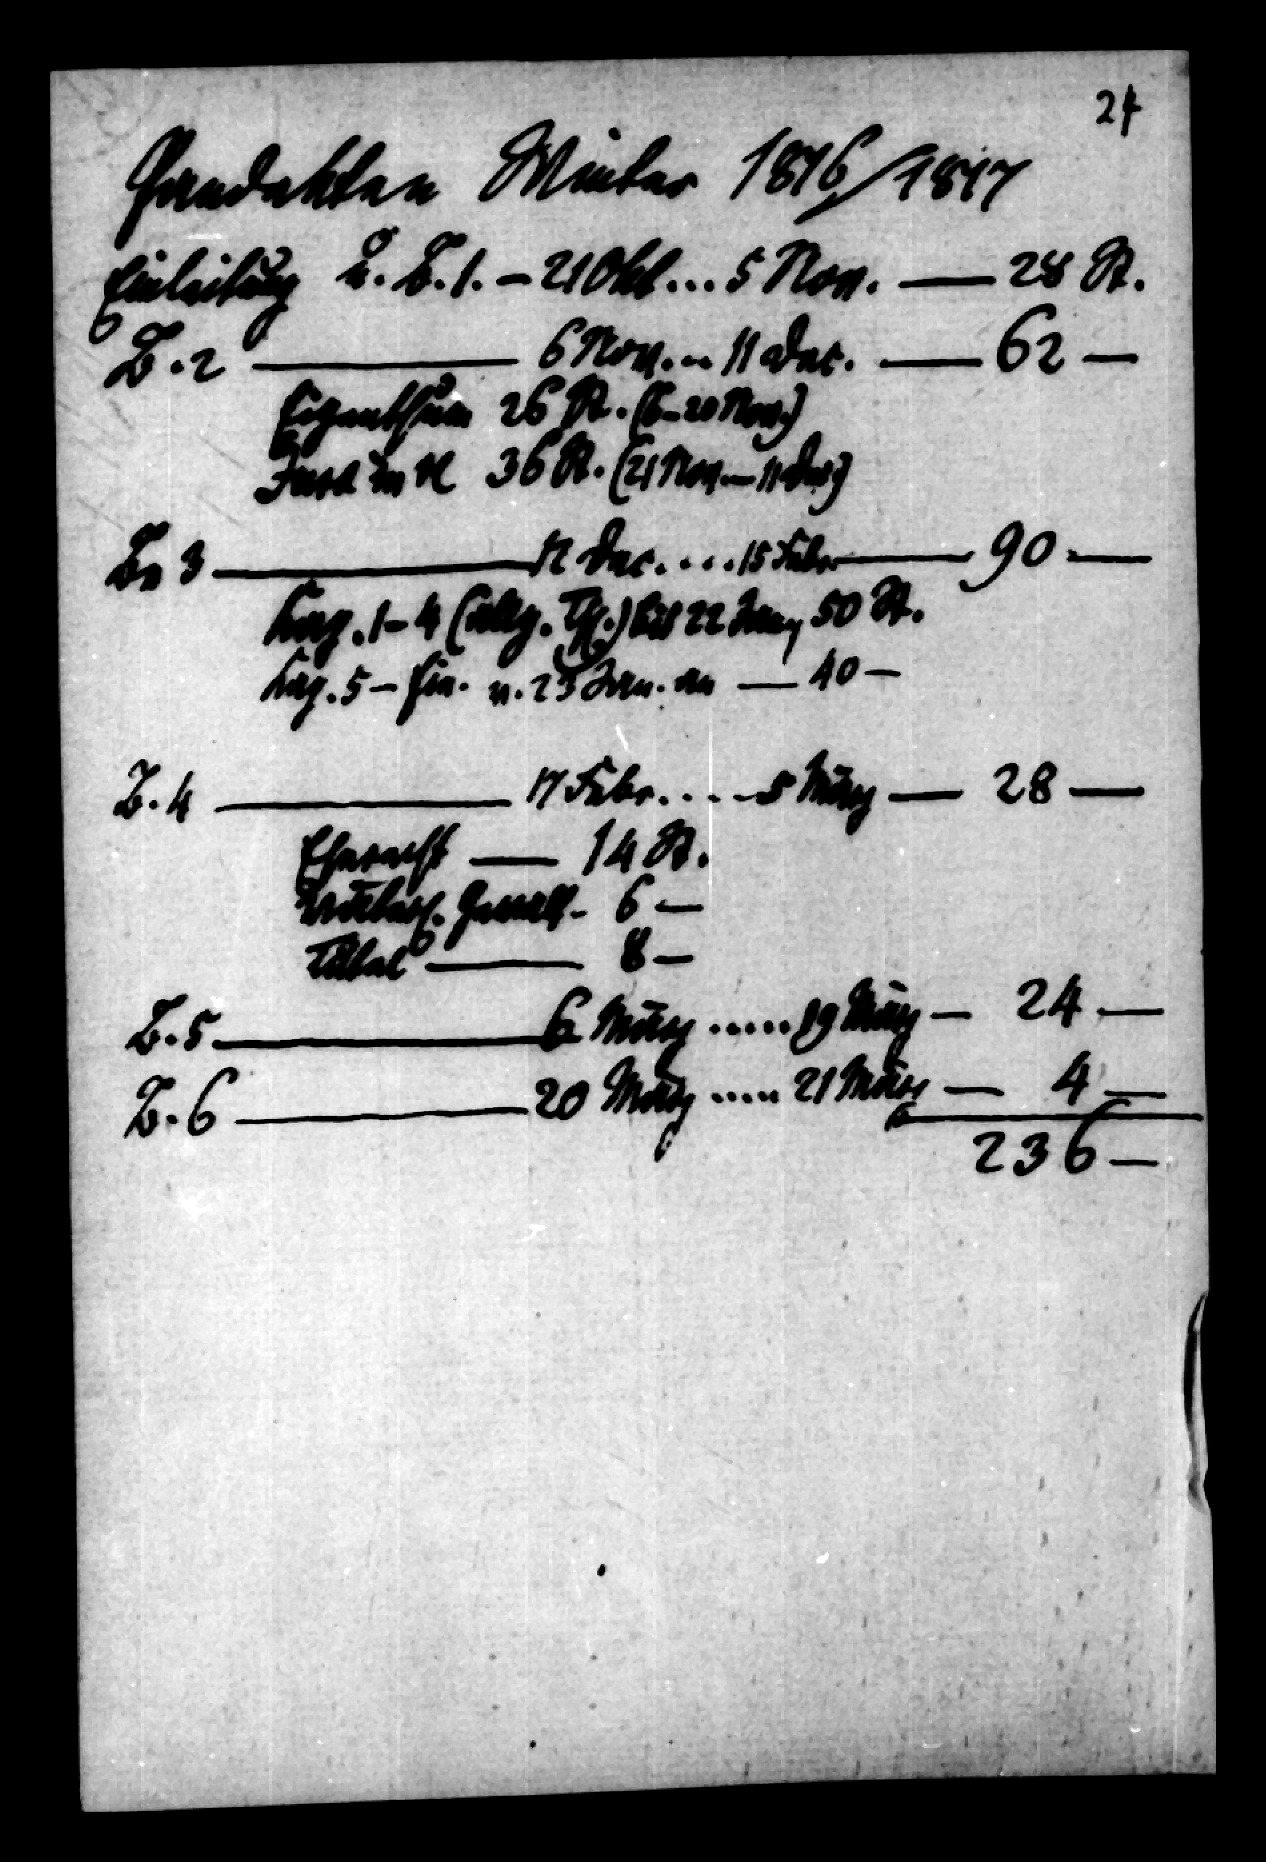 24
Pandekten Winter 1816/1817
Einleitung u. B. 1. – 21 Okt... 5 Nov. — 28 St.
B. 2 — 6 Nov... 11 Dec. — 62 —
Eigenthum 26 St. (6–20 Nov.)
Jura in re 36 St. (21 Nov.–11 Dec)
B. 3 — 12 Dec.... 15 Febr — 90 —
Cap. 1–4 (allg. Th.) bis 22 Jan, 50 St.
Cap. 5 – fin. v. 23 Jan. an — 40 —
B. 4 — 17 Febr..... 5 März — 28 —
Eherecht — 14 St.
Väterl. Gewalt. 6 —
Tutel — 8 —
B. 5 — 6 März ..... 19 März — 24 —
B. 6 — 20 März ..... 21 März — 4 —
236 —